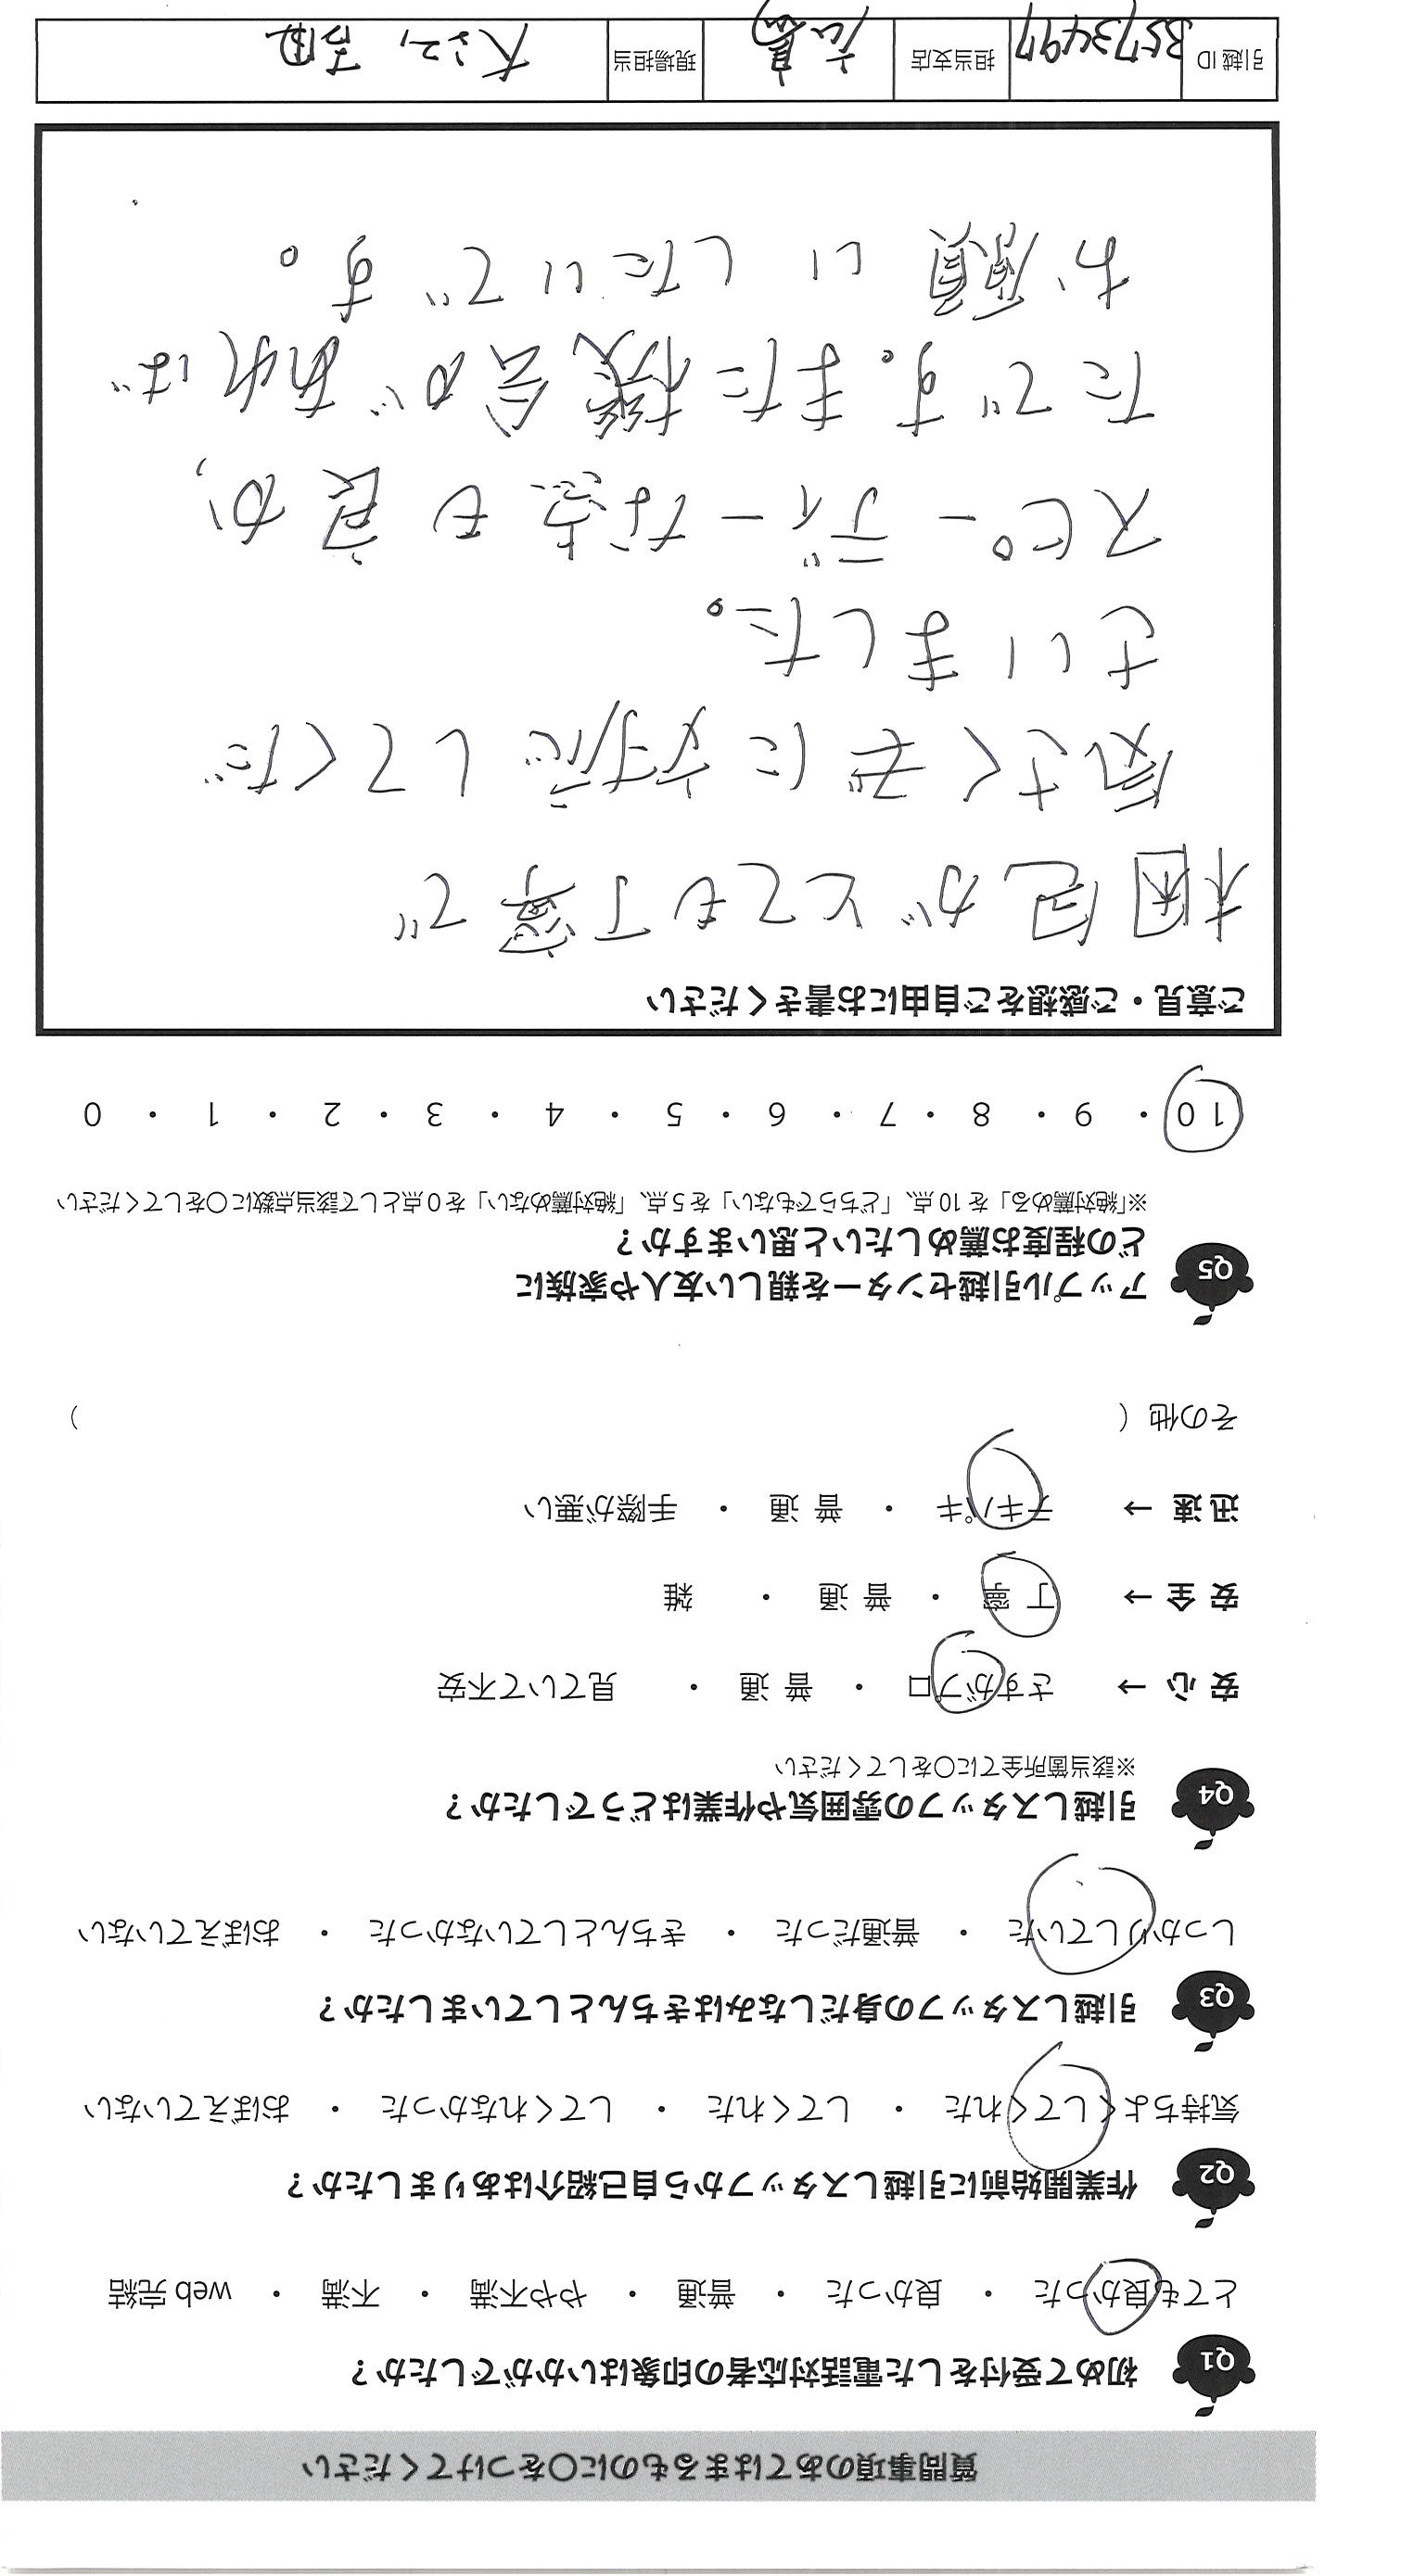 質問事項のあてはまるものに○をつけてください
Q1 初めて受付をした電話対応者の印象はいかがでしたか？
とても良かった ・ 良かった ・ 普通 ・ やや不満 ・ 不満 ・ web 完結
Q2 作業開始前に引越しスタッフから自己紹介はありましたか？
気持ちよくしてくれた ・ してくれた ・ してくれなかった ・ おぼえていない
Q3 引越しスタッフの身だしなみはきちんとしていましたか？
しっかりしていた ・ 普通だった ・ きちんとしていなかった ・ おぼえていない
Q4 引越しスタッフの雰囲気や作業はどうでしたか？
※該当箇所全てに○をしてください
安 心 → さすがプロ ・ 普 通 ・ 見ていて不安
安 全 → 丁 寧 ・ 普 通 ・ 雑
迅 速 → テキパキ ・ 普 通 ・ 手際が悪い
その他（ ）
Q5 アップル引越センターを親しい友人や家族に
どの程度お薦めしたいと思いますか？
※「絶対薦める」を 10 点、「どちらでもない」を 5 点、「絶対薦めない」を 0 点として該当点数に○をしてください
10 ・ 9 ・ 8 ・ 7 ・ 6 ・ 5 ・ 4 ・ 3 ・ 2 ・ 1 ・ 0
ご意見・ご感想をご自由にお書きください
梱包がとても丁寧で
気さくぞに対応してくだ
さいました。
スピーディーな点も良か、
たです。また機会があれば
お願いしたいです。
引越 ID 3573497 担当支店 広島 現場担当